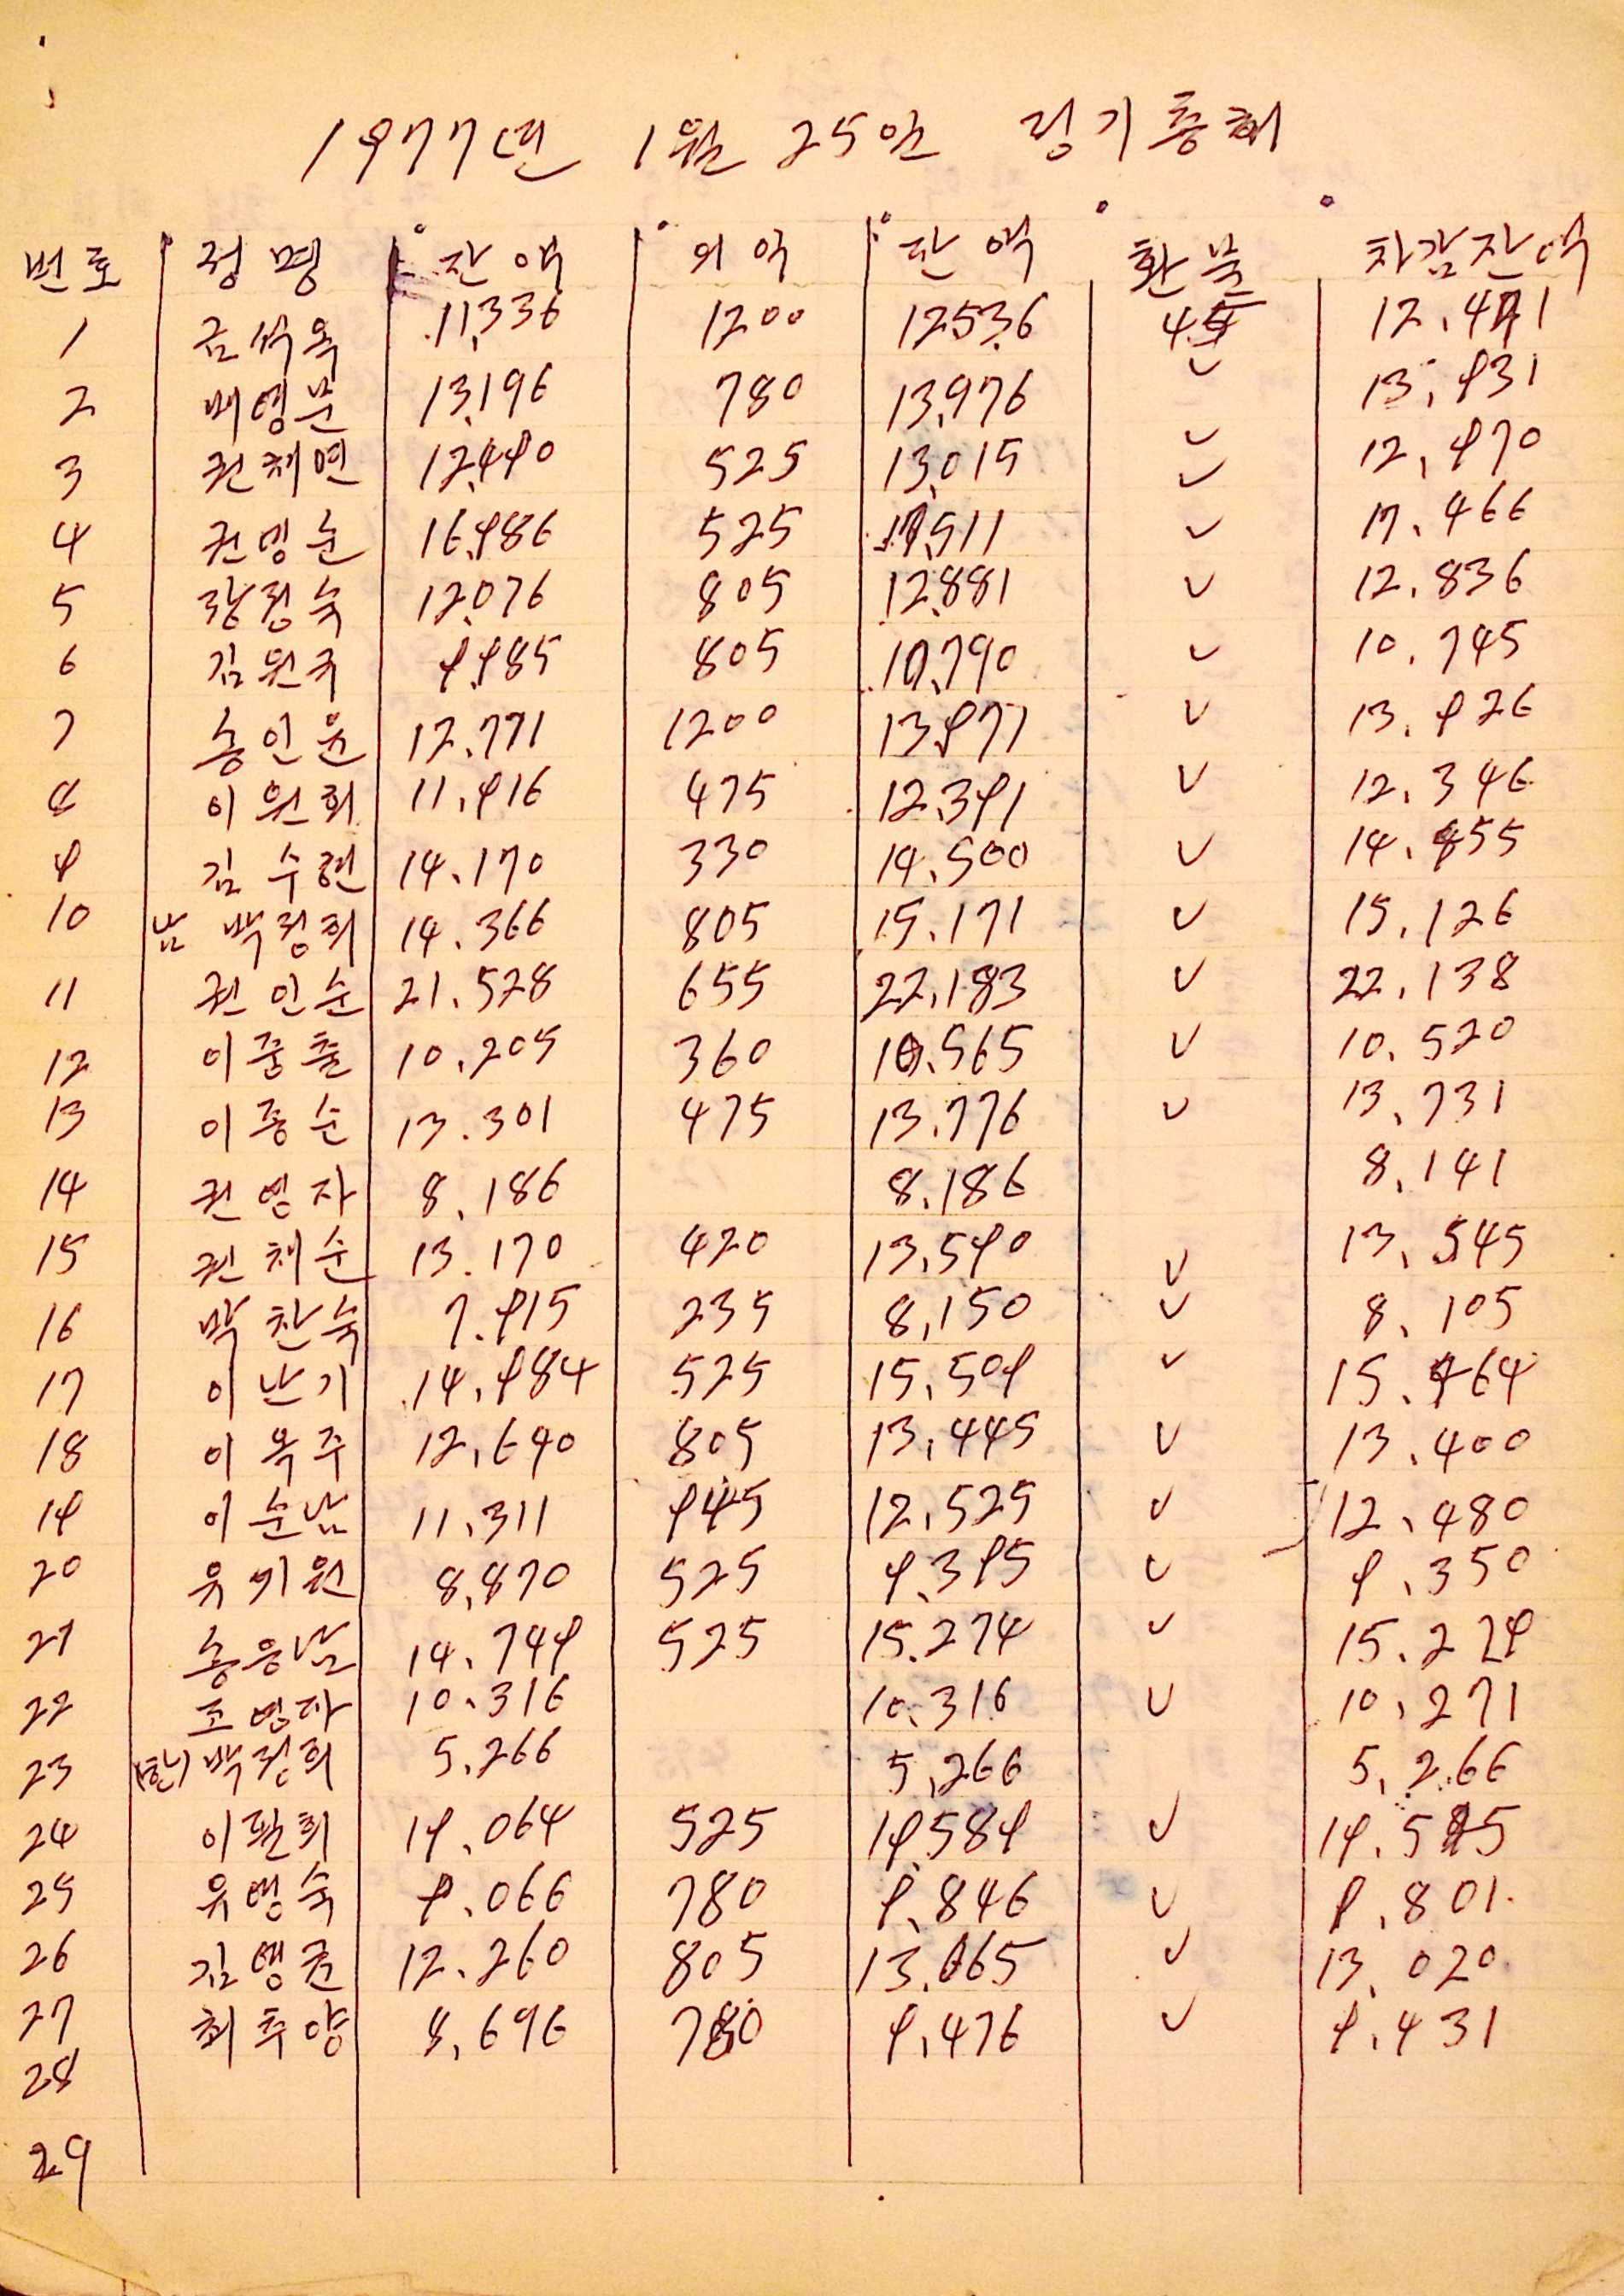 1977년 1월 25일 정기총회
번호 정명 잔액 이익 잔액 환불 차감잔액
1 금석옥 11,336 1200 12536 45 12.491
2 배영분 13,196 780 13,976 ✓ 13,931
3 권채연 12,490 525 13,015 ✓ 12,970
4 권영순 16,986 525 17,511 ✓ 17.466
5 장정숙 12,076 805 12,881 ✓ 12.836
6 김원규 9,985 805 10,790 ✓ 10.745
7 송인윤 12.771 1200 13,971 ✓ 13.926
8 이원희 11,916 475 12,391 ✓ 12.346
9 김수현 14.170 330 14.500 ✓ 14.455
10 남 박정희 14.366 805 15.171 ✓ 15.126
11 권인순 21.528 655 22,183 ✓ 22.138
12 이중출 10.205 360 10.565 ✓ 10.520
13 이종순 13.301 475 13.776 ✓ 13,731
14 권영자 8,186 8.186 8,141
15 권채순 13.170 420 13,590 ✓ 13,545
16 박찬숙 7.915 235 8,150 ✓ 8,105
17 이난기 14,984 525 15,509 ✓ 15.464
18 이옥주 12,640 805 13,445 ✓ 13.400
19 이순남 11,311 945 12,525 ✓ 12,480
20 유기원 8,870 525 9,395 ✓ 9,350
21 송응남 14,749 525 15.274 ✓ 15.229
22 조영자 10.316 10.316 ✓ 10,271
23 (한) 박정희 5.266 5,266 5,266
24 이필희 19.064 525 19,589 ✓ 19.545
25 유영숙 9.066 780 9,846 ✓ 9,801
26 김영근 12.260 805 13.065 ✓ 13,020
27 최추양 8,696 780 9,476 ✓ 9,431
28
29